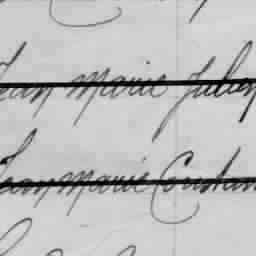 Jean Marie Julien
Jean Marie Constan